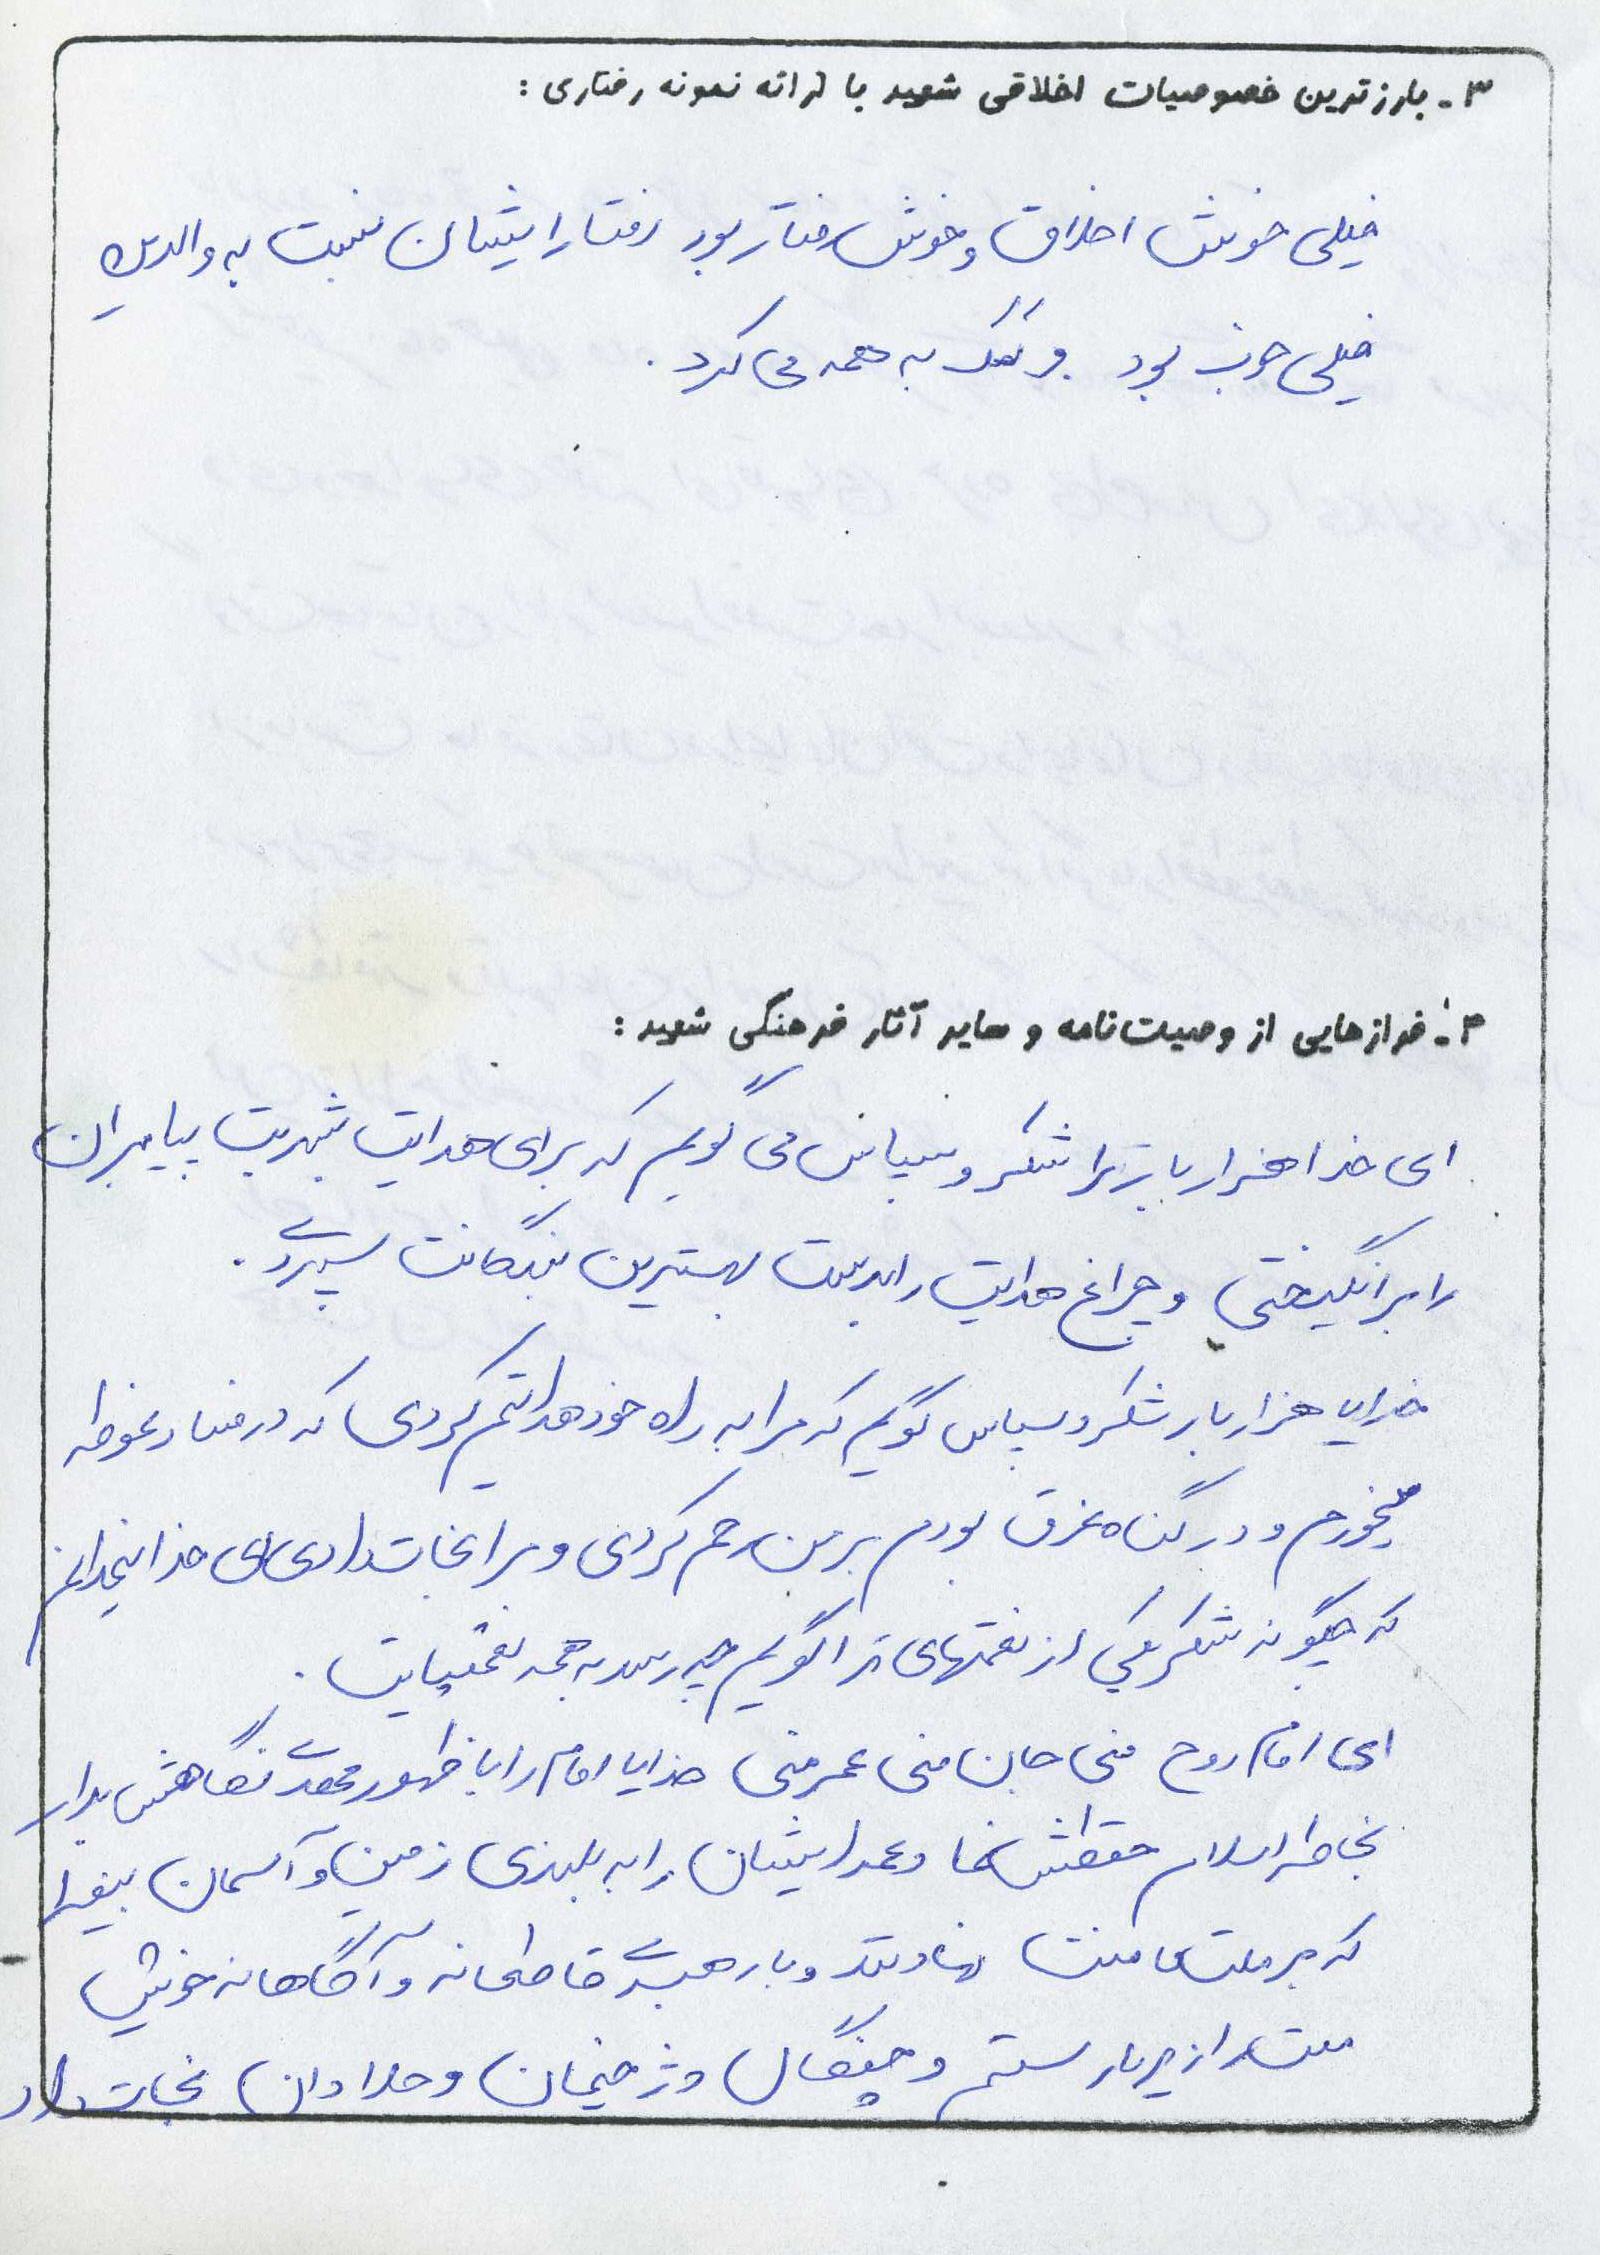 ۳- بارزترین خصوصیات اخلاقی شهید با ارائه نمونه رفتاری :
خیلی خوش اخلاق و خوش رفتار بود رفتار ایشان نسبت به والدین
خیلی خوب بود و کمک به همه می کرد .
۴- فرازهایی از وصیت‌نامه و سایر آثار فرهنگی شهید :
ای خدا هزار بار ترا شکر و سپاس می گویم که برای هدایت بشریت پیامبران
را برانگیختی و چراغ هدایت را بدست بهترین بندگانت سپردی .
خدایا هزار بار شکر و سپاس گویم که مرا به راه خود هدایتم کردی که در فساد غوطه
میخوردم و در گناه غرق بودم بر من رحم کردی و مرا نجات دادی ای خدا نمیدانم
که چگونه شکر یکی از نعمتهای ترا گویم چه رسد به همه نعمتهایت .
ای امام روح منی جان منی عمر منی خدایا امام را با ظهور مهدی نگاهش بدار
بخاطر اسلام حفظش نما و عمر ایشان را به بلندی زمین و آسمان بیفزا
که بر ملت ما منت نهادند و با رهبری قاطعانه و آگاهانه خویش
ملت را از زیر بار ستم و چنگال دژخیمان و جلادان نجات داد